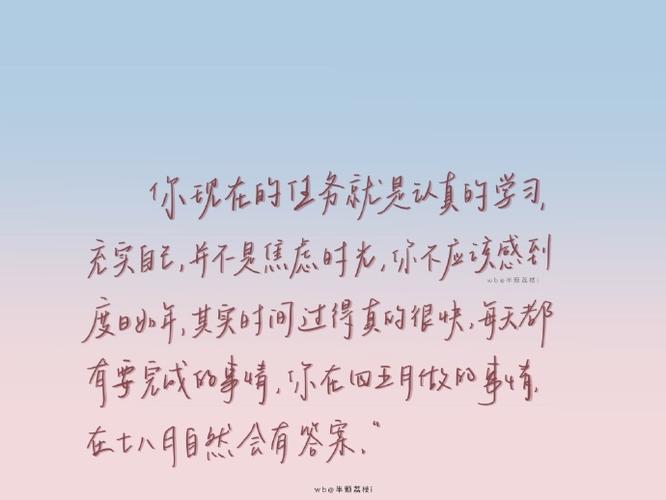 你现在的任务就是认真的学习,
充实自己,并不是焦虑时光,你不应该感到
wb@半颗荔枝i
度日如年,其实时间过得真的很快,每天都
有要完成的事情,你在四五月做的事情,
在七八月自然会有答案。”
wb@半颗荔枝i